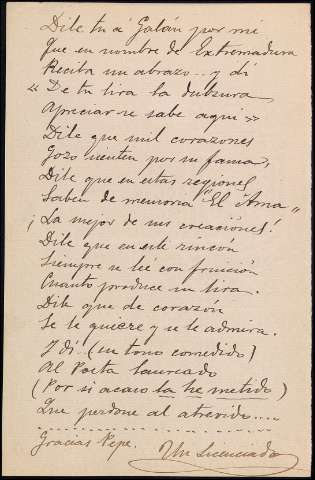 Dile tu á Galán por mi
Que en nombre de Extremadura
Reciba un abrazo.. y di
"De tu lira la dulzura
Apreciar se sabe aqui"
Dile que mil corazones
Gozo sienten por su fama,
Dile que en estas regiones
Saben de memoria "El Ama"
¡La mejor de sus creaciónes!
Dile que en este rincón
Siempre se lée con fruición
Cuanto produce su lira.
Dile que de corazón
Se le quiere y se le admira.
Y di (en tono comedido)
Al Poeta laureado
(Por si acaso la he metido)
Que perdone al atrevido.....
Gracias Pepe. Un Licenciado